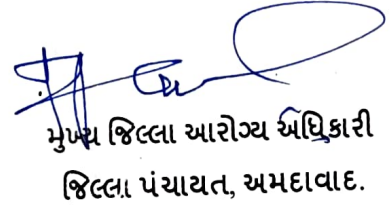 મુખ્ય જિલ્લા આરોગ્ય અધિકારી
જિલ્લા પંચાયત, અમદાવાદ.